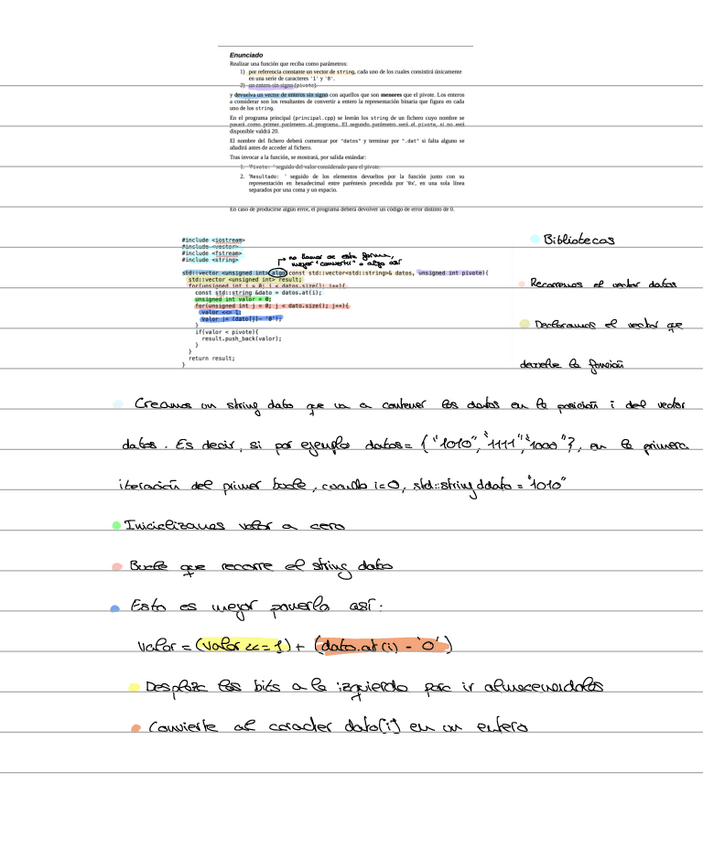 Enunciado
Realizar una función que reciba como parámetros:
1) por referencia constante un vector de string, cada uno de los cuales consistirá únicamente
en una serie de caracteres '1' y '0'.
2) un entero sin signo (pivote).
y devuelva un vector de enteros sin signo con aquellos que son menores que el pivote. Los enteros
a considerar son los resultantes de convertir a entero la representación binaria que figura en cada
uno de los string.
En el programa principal (principal.cpp) se leerán los string de un fichero cuyo nombre se
pasará como primer parámetro al programa. El segundo parámetro será el pivote, si no está
disponible valdrá 20.
El nombre del fichero deberá comenzar por "datos" y terminar por ".dat" si falta alguno se
añadirá antes de acceder al fichero.
Tras invocar a la función, se mostrará, por salida estándar:
1. 'Pivote: ' seguido del valor considerado para el pivote.
2. 'Resultado: ' seguido de los elementos devueltos por la función junto con su
representación en hexadecimal entre paréntesis precedida por '0x', en una sola línea
separados por una coma y un espacio.
En caso de producirse algún error, el programa deberá devolver un código de error distinto de 0.
#include <iostream>
#include <vector>
#include <fstream>
#include <string>
Bibliotecas
no llamar de esta forma,
mejor "convertir" o algo así
std::vector <unsigned int> algo(const std::vector<std::string>& datos, unsigned int pivote){
std::vector <unsigned int> result;
for(unsigned int i = 0; i < datos.size(); i++){
const std::string &dato = datos.at(i);
unsigned int valor = 0;
for(unsigned int j = 0; j < dato.size(); j++){
valor <<= 1;
valor |= (dato[j]- '0');
}
if(valor < pivote){
result.push_back(valor);
}
}
return result;
}
Recorremos el vector datos
Declaramos el vector que
devuelve la función
Creamos un string dato que va a contener los datos en la posición i del vector
datos. Es decir, si por ejemplo datos = {"1010", "1111", "1000"}, en la primera
iteración del primer bucle, cuando i=0, std::string &dato = "1010"
Inicializamos valor a cero
Bucle que recorre el string dato
Esto es mejor ponerlo así:
valor = (valor <<= 1) + (dato.at(i) - '0')
Desplaza los bits a la izquierda para ir almacenándolos
Convierte al caracter dato[i] en un entero